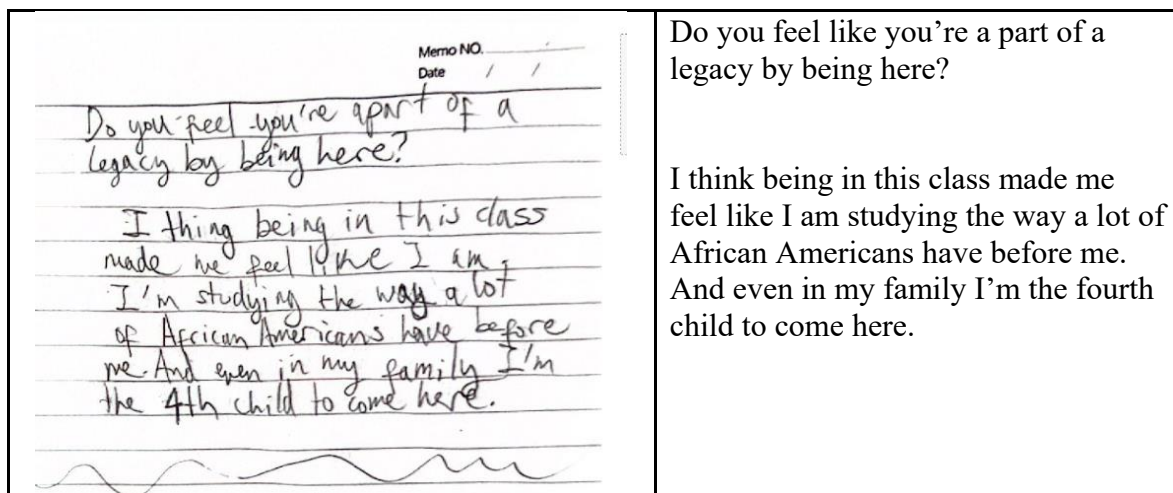 Memo NO.
Date / /
Do you feel you're apart of a
legacy by being here?
I thing being in this class
made me feel like I am.
I'm studying the way a lot
of African Americans have before
me. And even in my family I'm
the 4th child to come here.
Do you feel like you’re a part of a
legacy by being here?
I think being in this class made me
feel like I am studying the way a lot of
African Americans have before me.
And even in my family I’m the fourth
child to come here.